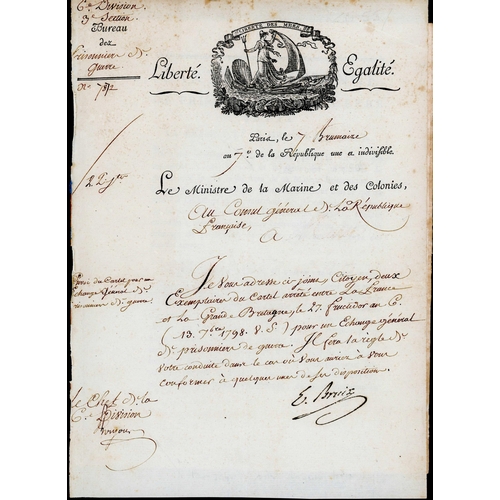 6.e Division.
3.e Section
Bureau
des
Prisonniers de
guerre
N.o 782
LIBERTÉ DES MERS
Liberté. Egalité.
Paris, le 7 Brumaire
an 7.e de la République une et indivisible.
Le Ministre de la Marine et des Colonies,
Au Consul général de La République
Française,
A
Envoi du Cartel pour un
échange général de
prisonniers de guerre.
Je Vous adresse ci-joints, Citoyen, deux
Exemplaires du Cartel arrêté entre La France
et La Grande Bretagne, le 27. fructidor an 6.
(13. 7.bre 1798. V. S.) pour un Echange général
de prisonniers de guerre. Il fera la règle de
Votre conduite dans le cas où Vous auriez à vous
conformer à quelques unes de ses dispositions.
E. Bruix
Le Chef de la
6.e Division